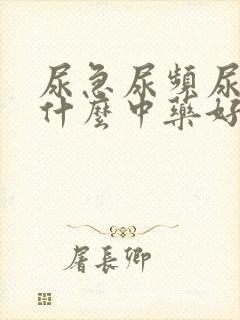 尿急尿頻尿
什麼中藥好
屠長卿